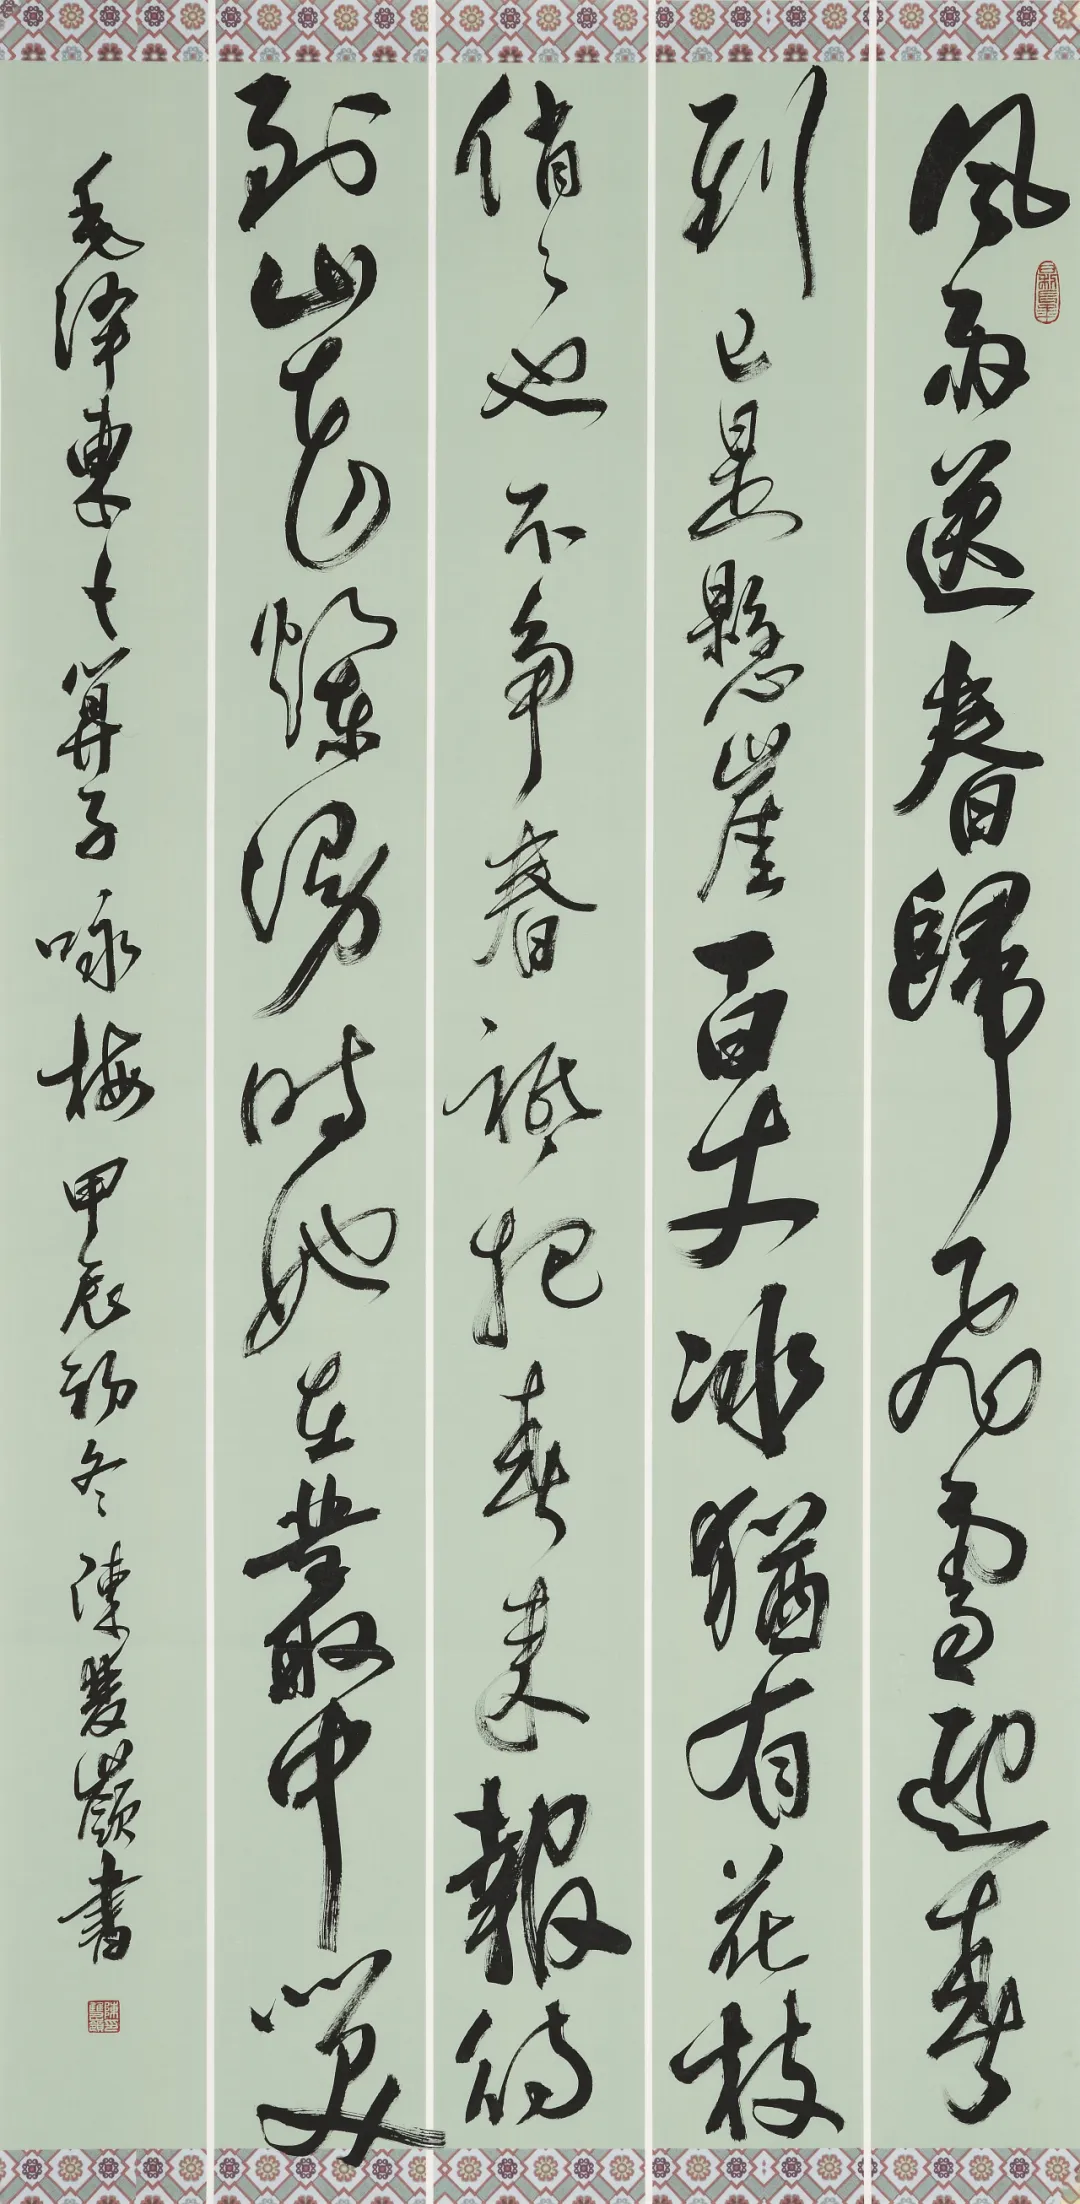 风雨送春歸飛雪迎春
到已是懸崖百丈冰猶有花枝
俏々也不争春祇把春来報待
到山花爛漫時她在叢中笑
毛泽東卜算子咏梅甲辰初冬陳書